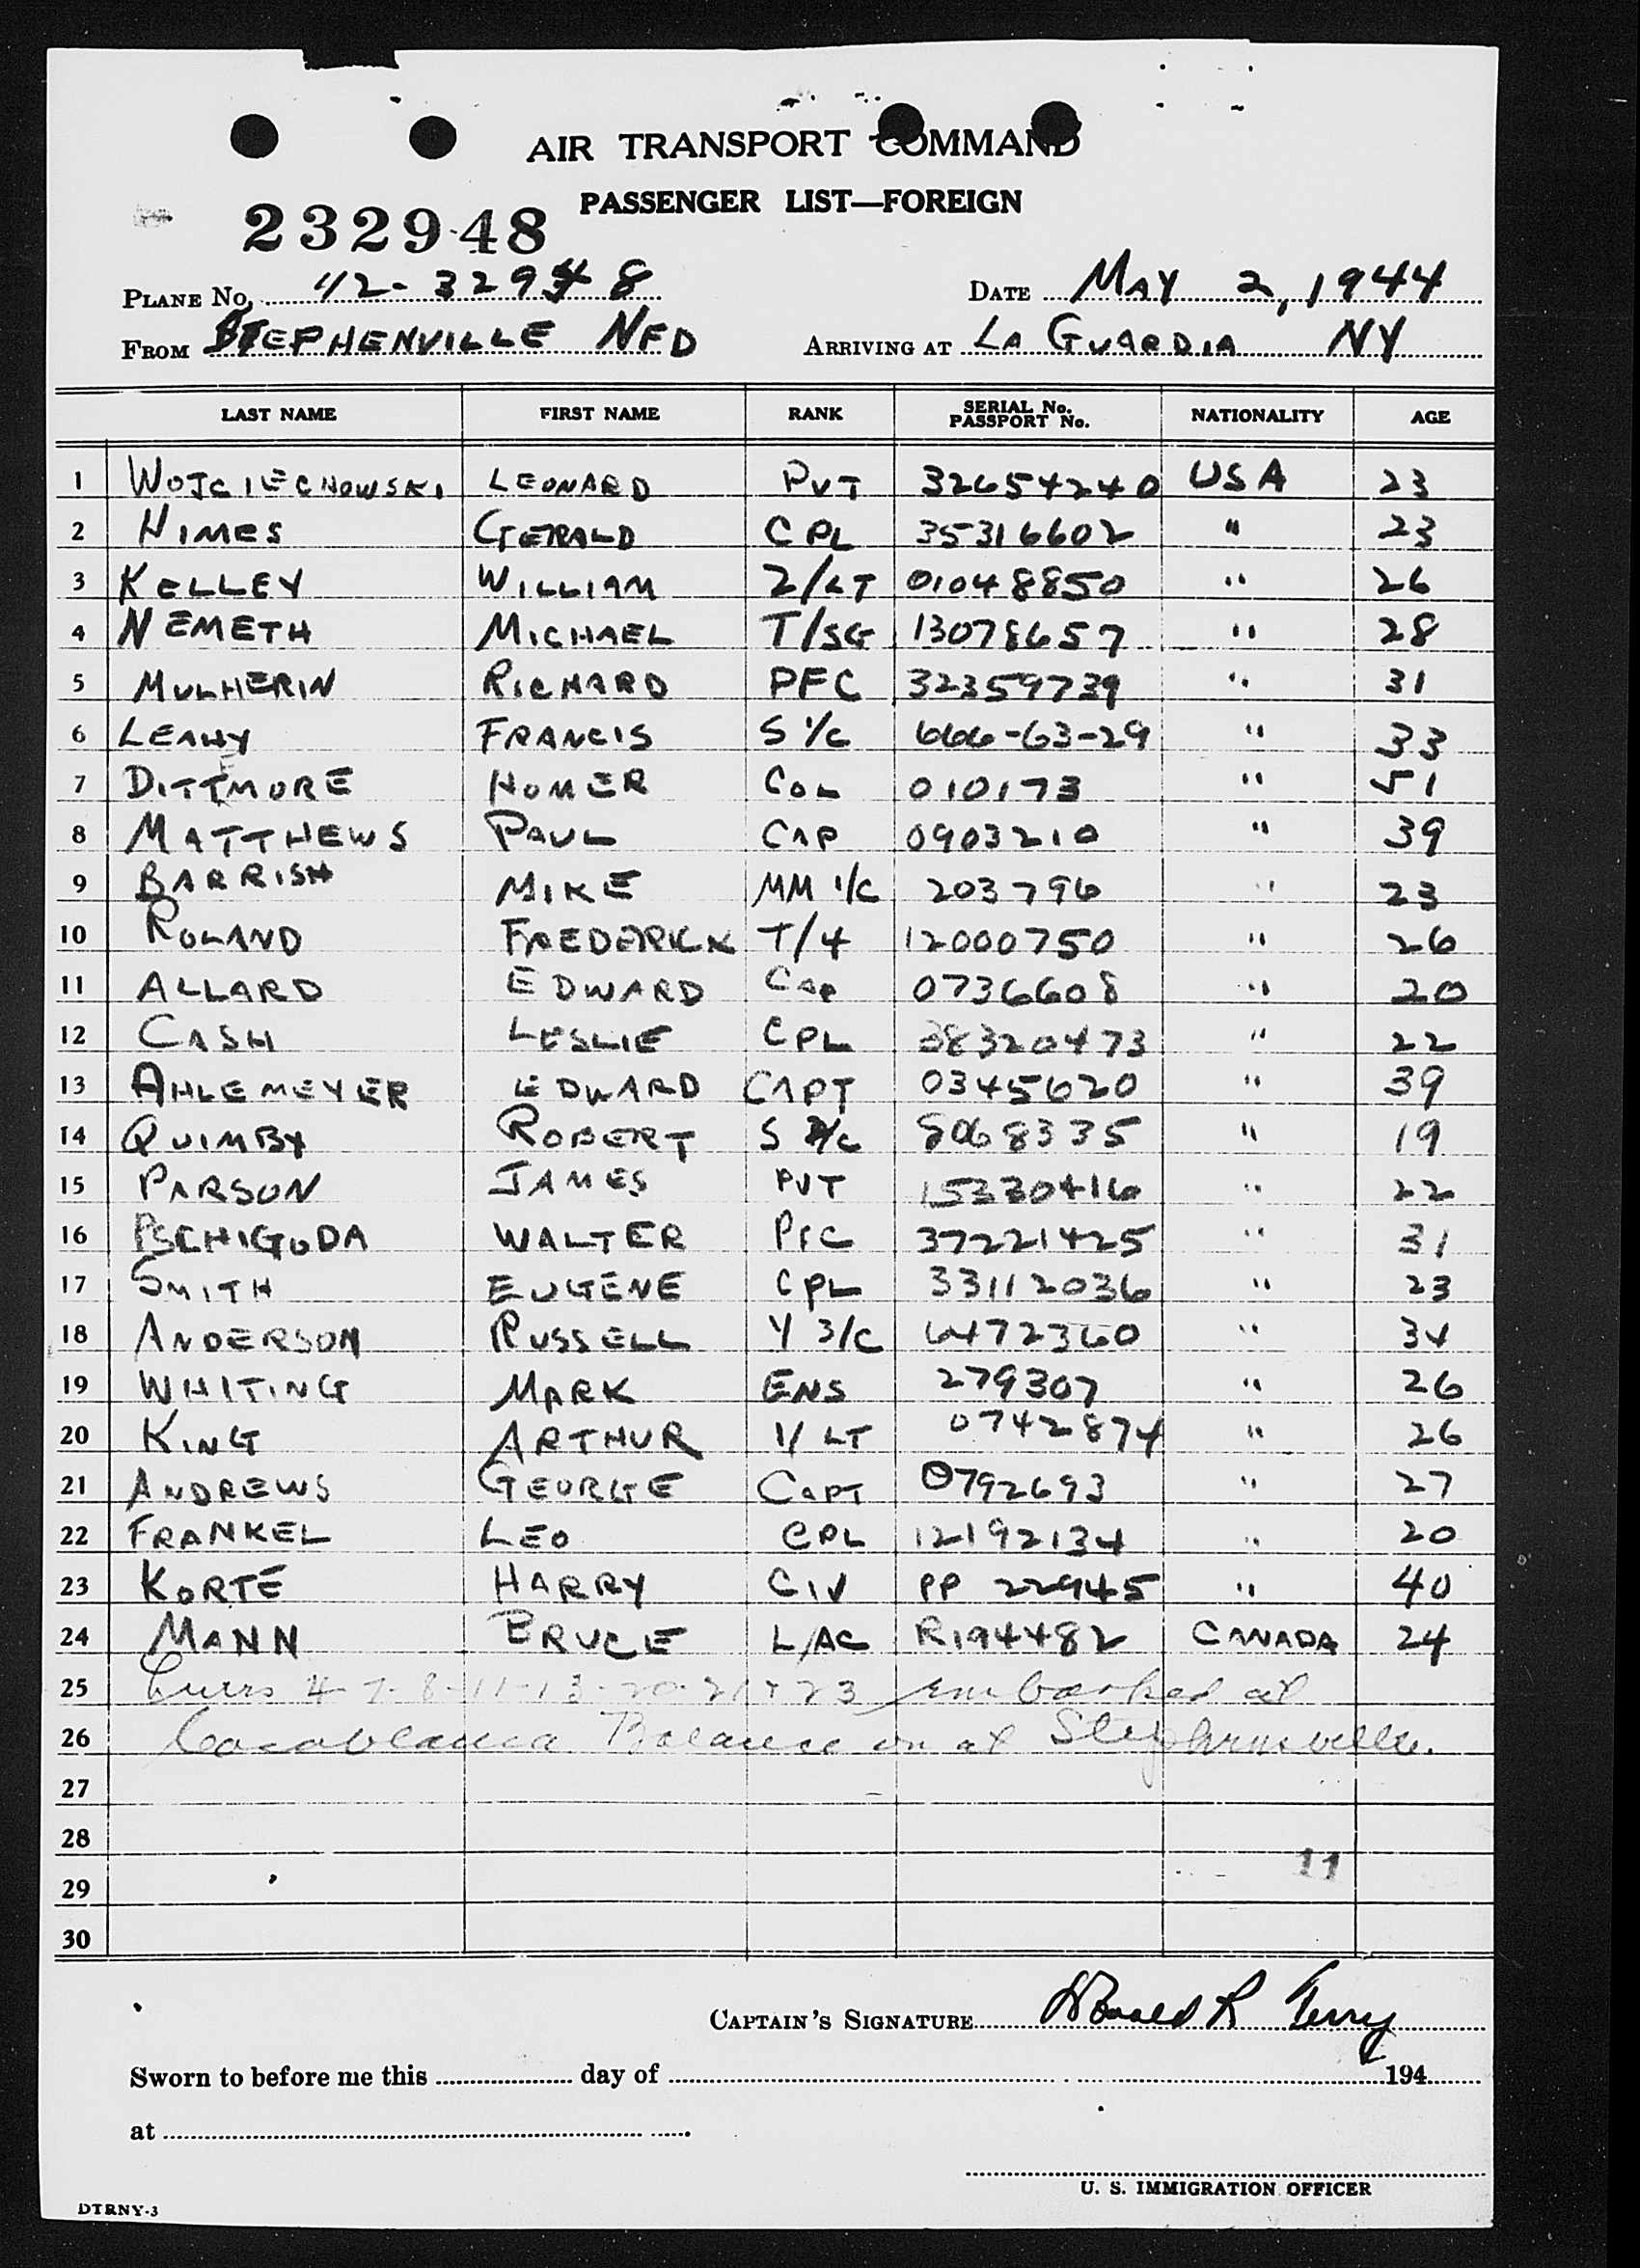 AIR TRANSPORT COMMAND
PASSENGER LIST—FOREIGN
232948
PLANE No. 42-32948 DATE MAY 2, 1944
FROM STEPHENVILLE NFD ARRIVING AT LA GUARDIA NY
LAST NAME FIRST NAME RANK SERIAL No. PASSPORT No. NATIONALITY AGE
1 WOJCIECHOWSKI LEONARD PVT 32654240 USA 23
2 HIMES GERALD CPL 35316602 " 23
3 KELLEY WILLIAM 2/LT 01048850 " 26
4 NEMETH MICHAEL T/SG 13078657 " 28
5 MULHERIN RICHARD PFC 32359739 " 31
6 LEAHY FRANCIS S 1/C 666-63-29 " 33
7 DITTMORE HOMER COL 010173 " 51
8 MATTHEWS PAUL CAP 0903210 " 39
9 BARRISH MIKE MM 1/C 203796 " 23
10 ROLAND FREDERICK T/4 12000750 " 26
11 ALLARD EDWARD CAP 0736608 " 20
12 CASH LESLIE CPL 38320473 " 22
13 AHLEMEYER EDWARD CAPT 0345620 " 39
14 QUIMBY ROBERT S 2/C 8068335 " 19
15 PARSON JAMES PVT 15330416 " 22
16 PSCHIGODA WALTER PFC 37221425 " 31
17 SMITH EUGENE CPL 33112036 " 23
18 ANDERSON RUSSELL Y 3/C 6472360 " 34
19 WHITING MARK ENS 279307 " 26
20 KING ARTHUR 1/LT 0742874 " 26
21 ANDREWS GEORGE CAPT 0792693 " 27
22 FRANKEL LEO CPL 12192134 " 20
23 KORTE HARRY CIV PP 22945 " 40
24 MANN BRUCE L/AC R194482 CANADA 24
25 # 7-8-11-13-20-21 & 23 embarked at
26 Casablanca Balance on at Stephenville.
27
28
11
29
30
CAPTAIN'S SIGNATURE Donald R Terry
Sworn to before me this day of 194
at
U. S. IMMIGRATION OFFICER
DTRNY-3